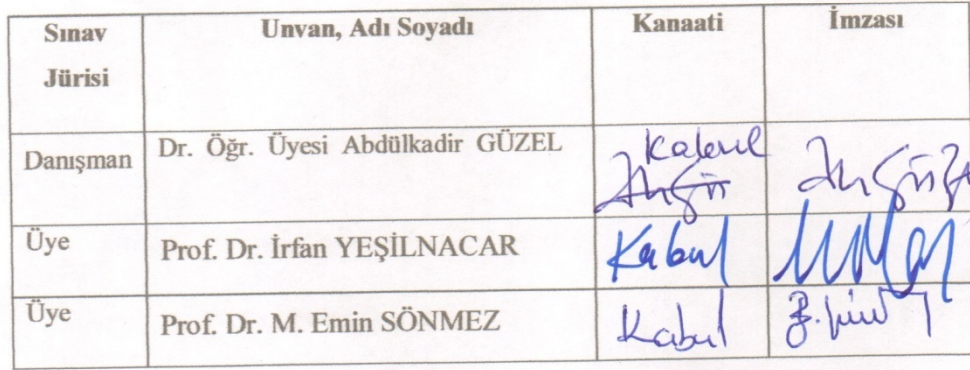 Sınav Jürisi
Unvan, Adı Soyadı
Kanaati
İmzası
Danışman
Dr. Öğr. Üyesi Abdülkadir GÜZEL
Kabul
Üye
Prof. Dr. İrfan YEŞİLNACAR
Kabul
Üye
Prof. Dr. M. Emin SÖNMEZ
Kabul